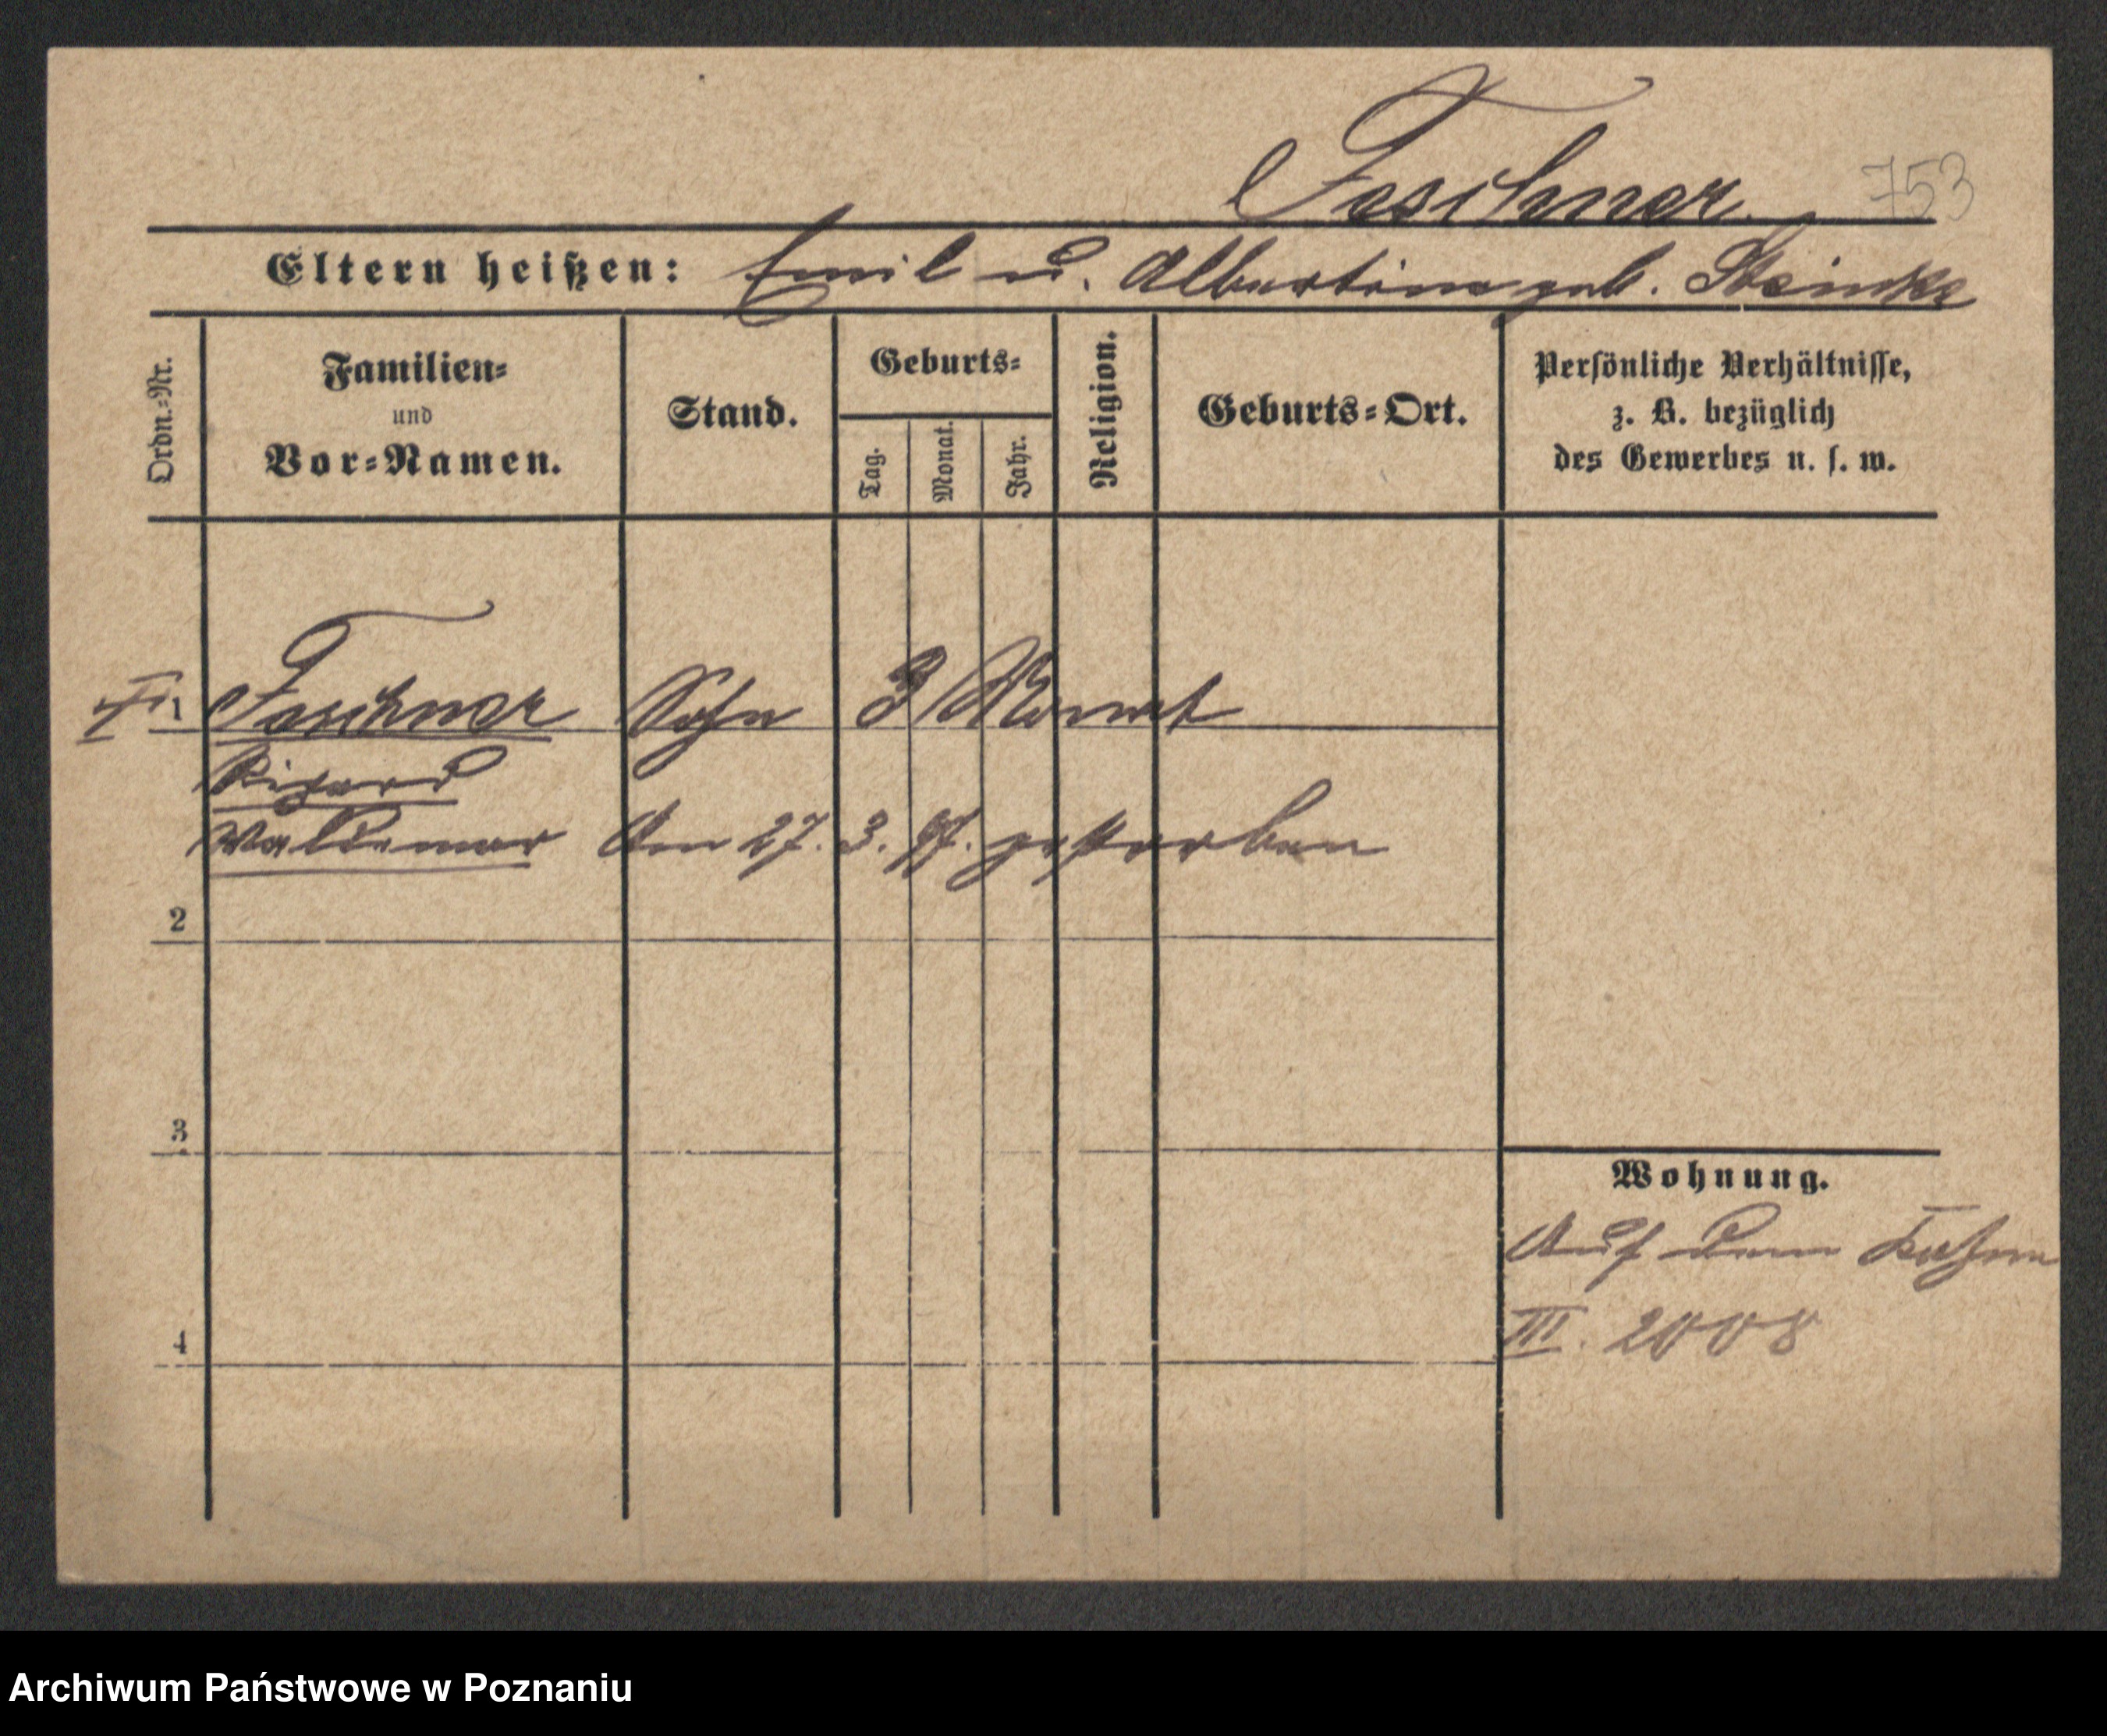 Faschner
753
Eltern heißen: Emil u. Albertine geb. Steinke
Ordn.-Nr.
Familien-
und
Vor-Namen.
Stand.
Geburts-
Tag.
Monat.
Jahr.
Religion.
Geburts-Ort.
Persönliche Verhältnisse,
z. B. bezüglich
des Gewerbes u. s. w.
1 Faschner Sohn 3 Monat
Richard
Waldemar Am 27. 3. 97. gestorben
2
3
Wohnung.
Auf dem Kahne
4
III. 2008
Archiwum Państwowe w Poznaniu